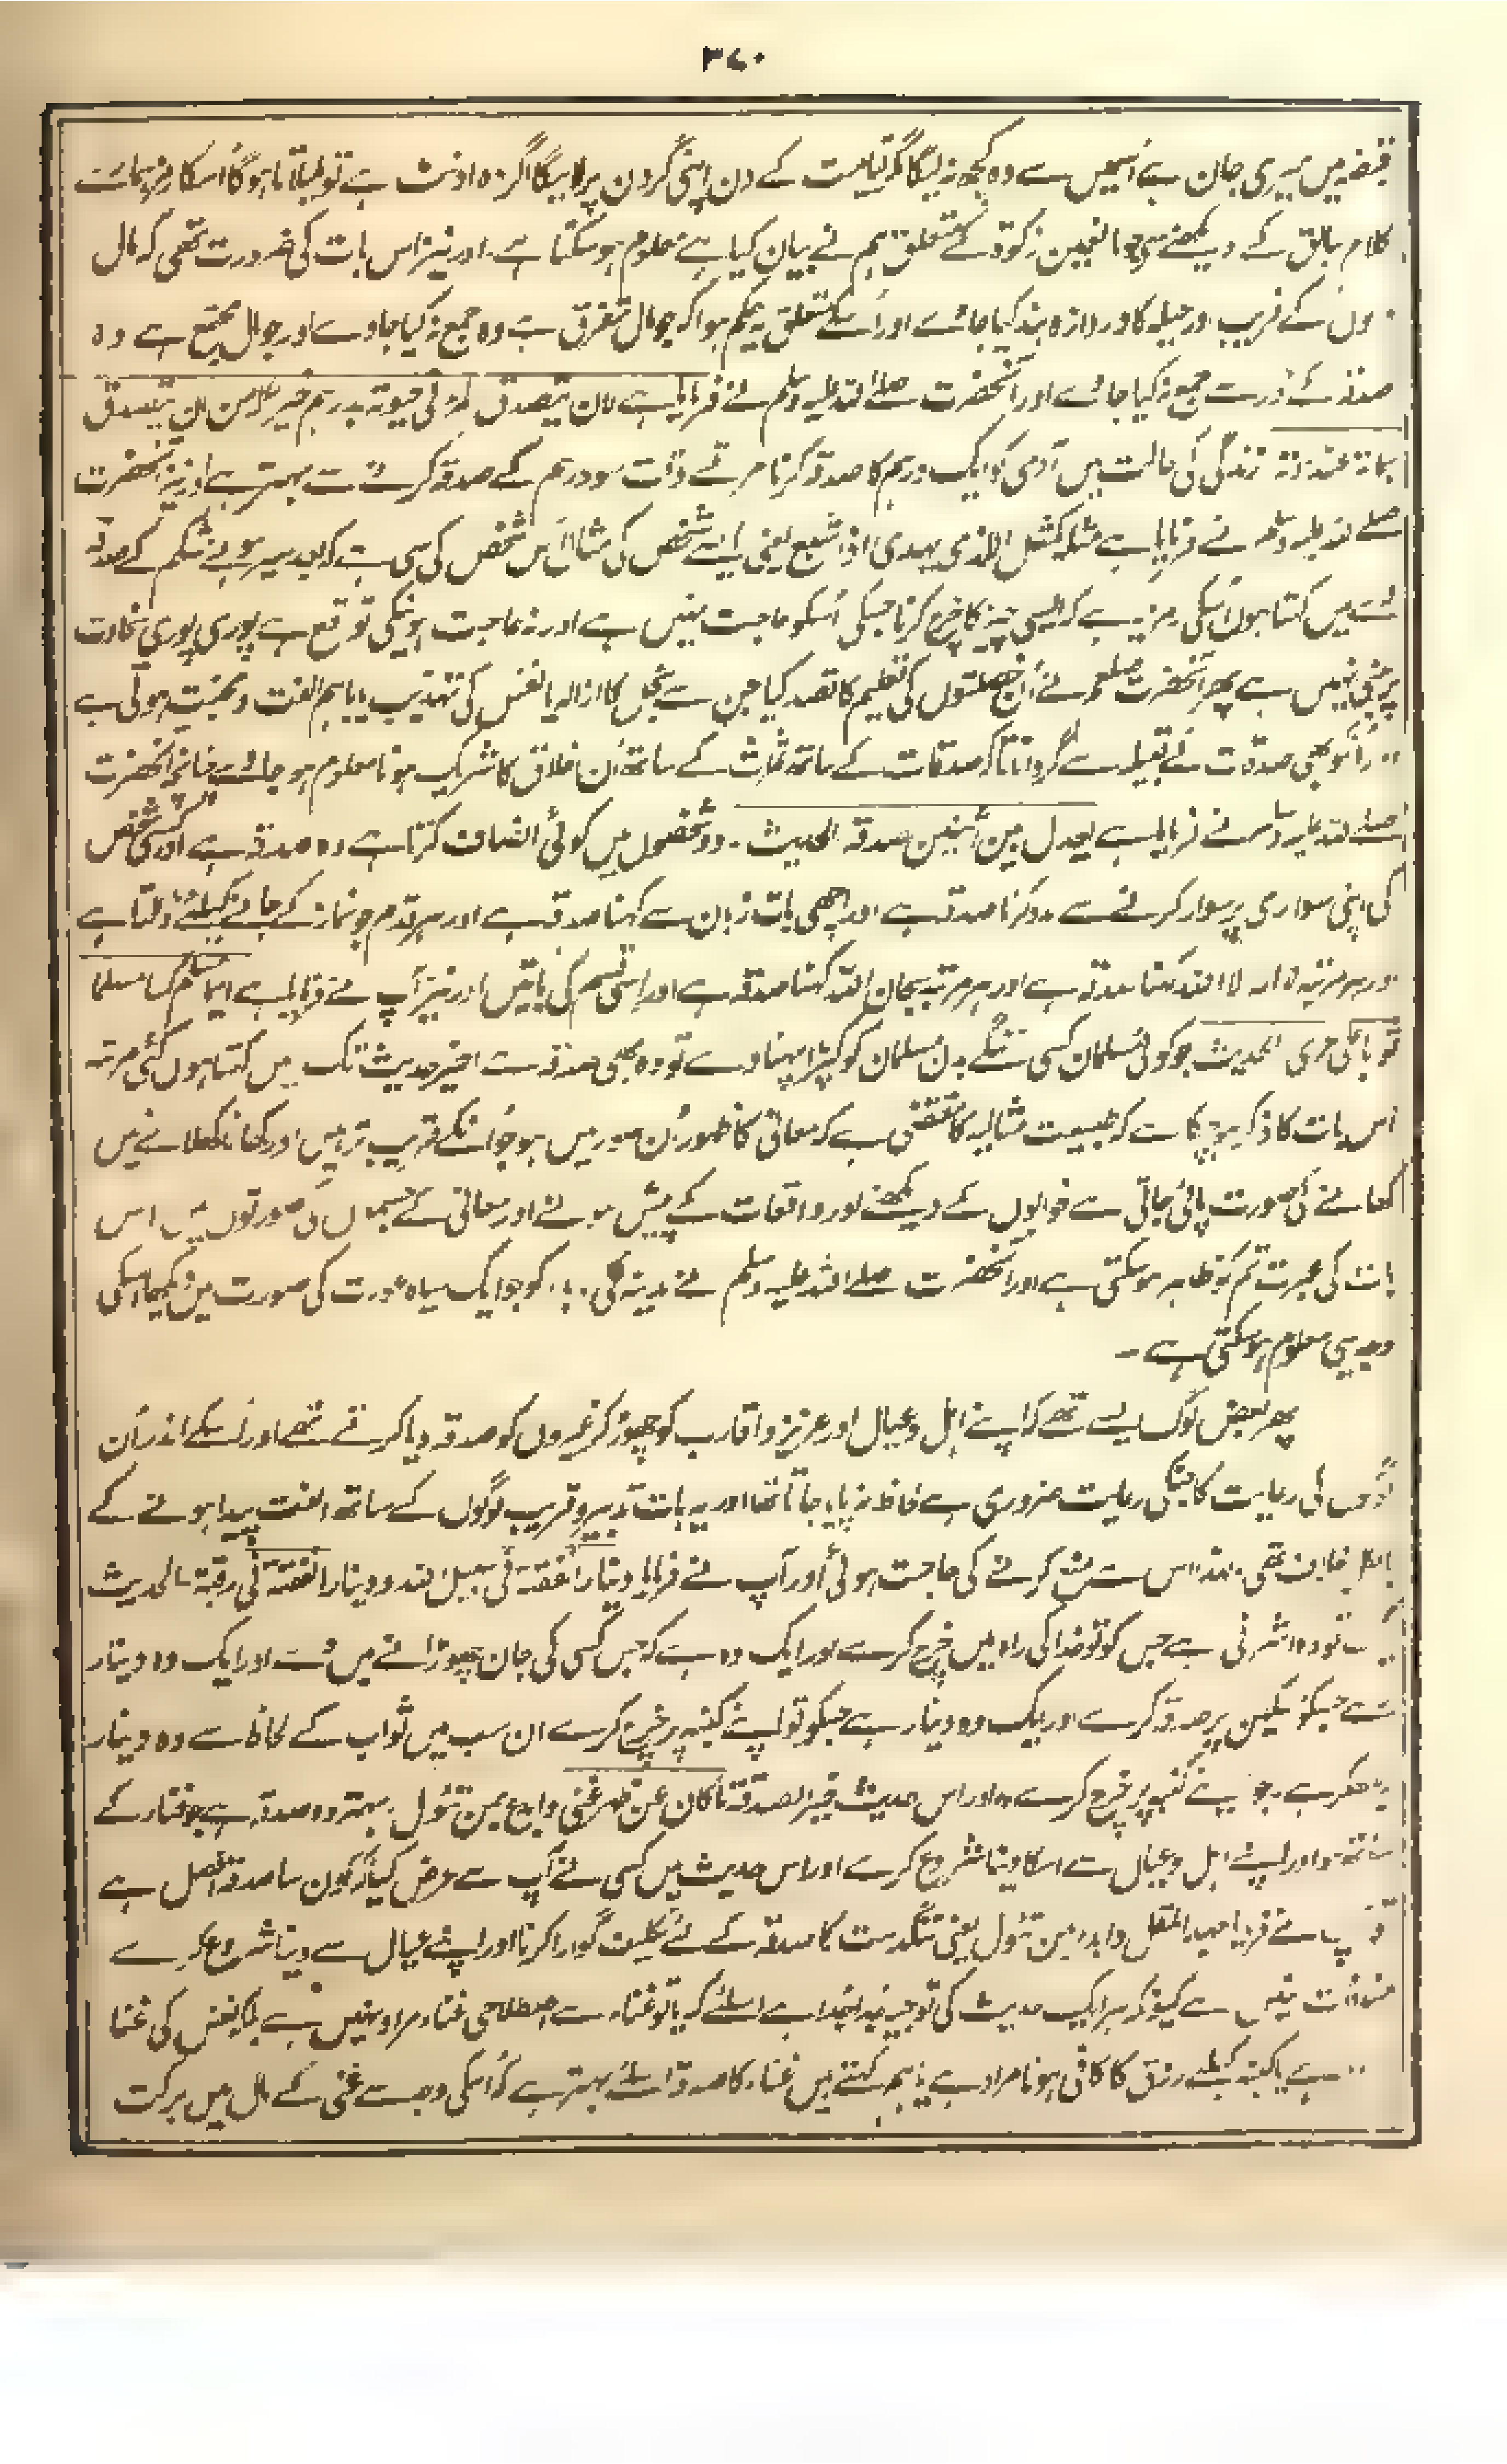 ۳۶۰
قبضہ میں میری جان ہے اُسمیں سے وہ کچھ نہ لیگا مگر قیامت کے دن اپنی گردن پر لاویگا اگر وہ اونٹ ہے تو بلبلاتا ہوگا اُسکا رمز ہماے
کلام سابق کے دیکھنے سے جو مانعین زکوۃ کے متعلق ہم نے بیان کیا ہے معلوم ہوسکتا ہے۔ اور نیز اس بات کی ضرورت تھی کہ مال
کے فریب اور حیلہ کا دروازہ بند کیا جائے اور اُسکے متعلق یہ حکم ہوا کہ جو مال متفرق ہے وہ جمع نہ کیا جاوے اور جو مال مجتمع ہے وہ
صدقہ کے جمع نہ کیا جائے اور آنحضرت صلے اللہ علیہ وسلم نے فرمایا ہے لان یتصدق المرء فی حیوتہ بدرہم خیر لہ من ان یتصدق
بمائۃ عند موتہ زندگی کی حالت میں آدمی کو ایک درہم کا صدقہ کرنا مرتے وقت سو درہم کے صدقہ کرنے سے بہتر ہے اور نیز آنحضرت
صلے اللہ علیہ وسلم نے فرمایا ہے مثلہ کمثل الذی یہدی اذا شبع یعنی ایسے شخص کی مثال اُس شخص کی سی ہے کہ بعد سیر ہونے شکم کے صدقہ
میں کہتا ہوں اُسکی رمز یہ ہے کہ ایسی چیز کا خرچ کرنا جسکی اُسکو حاجت نہیں ہے اور نہ حاجت ہونیکی توقع ہے پوری پوری سخاوت
پر مبنی نہیں ہے پھر آنحضرت صلعم نے اُن خصلتوں کی تعلیم کا قصد کیا جن سے بخل کا ازالہ یا نفس کی تہذیب یا باہم الفت و محبت ہوتی ہے
اُنکو بھی صدقات کے قبیلہ سے گردانا تاکہ صدقات کے ساتھ ثمرات کے ساتھ اُن اخلاق کا شریک ہونا معلوم ہو جائے چنانچہ آنحضرت
صلے اللہ علیہ وسلم نے فرمایا ہے یعدل بین اثنین صدقۃ الحدیث۔ دو شخصوں میں کوئی انصاف کرتا ہے وہ صدقہ ہے اور کسی شخص
کی اپنی سواری پر سوار کرنے سے مدد کرنا صدقہ ہے اور اچھی بات زبان سے کہنا صدقہ ہے اور ہر قدم جو نماز کے جانے کیلئے ڈالتا ہے
اور ہر مرتبہ لا الہ الا اللہ کہنا صدقہ ہے اور ہر مرتبہ سبحان اللہ کہنا صدقہ ہے اور اسی قسم کی باتیں اور نیز آپ نے فرمایا ہے ایما مسلم کسا مسلما
ثوبا علی عری الحدیث جو کوئی مسلمان کسی ننگے بدن مسلمان کو کپڑا پہناوے تو وہ بھی صدقہ ہے اخیر حدیث تک میں کہتا ہوں کئی مرتبہ
اس بات کا ذکر ہوچکا ہے کہ طبیعت مثالیہ کا مقتضی ہے کہ معانی کا ظہور اُن صور میں ہو جو اُنکے قریب تر ہیں اور کھانا کھلانے میں
کھانے کی صورت پائی جاتی ہے خوابوں کے دیکھنے اور واقعات کے پیش ہونے اور معانی کے جسموں کی صورتوں میں اس
بات کی عبرت تم کو ظاہر ہوسکتی ہے اور آنحضرت صلے اللہ علیہ وسلم نے مدینہ کی وبا کو جو ایک سیاہ عورت کی صورت میں دیکھا اسکی
وجہ یہی معلوم ہوسکتی ہے۔
پھر بعض لوگ ایسے تھے کہ اپنے اہل و عیال اور عزیز و اقارب کو چھوڑ کر غیروں کو صدقہ دیا کرتے تھے اور اُسکے اندر اُن
لوگوں کی رعایت کا جنکی رعایت ضروری ہے لحاظ نہ پایا جاتا تھا اور یہ بات تدبیر و قریب لوگوں کے ساتھ الفت پیدا ہونے کے
بالکل خلاف تھی۔ لہذا اس سے منع کرنے کی حاجت ہوئی اور آپ نے فرمایا دینار انفقتہ فی سبیل اللہ و دینار انفقتہ فی رقبۃ الحدیث
ایک تو وہ اشرفی ہے جس کو تو خدا کی راہ میں خرچ کرے اور ایک وہ ہے کہ جس کسی کی جان چھوڑانے میں دے اور ایک وہ دینار
ہے جسکو مسکین پر صدقہ کرے اور ایک وہ دینار ہے جسکو تو اپنے کنبہ پر خرچ کرے ان سب میں ثواب کے لحاظ سے وہ دینار
بڑھکر ہے۔ جو اپنے کنبہ پر خرچ کرے اور اس حدیث خیر الصدقۃ ما کان عن ظہر غنی وابدء بمن تعول۔ بہتر وہ صدقہ ہے جو غناء کے
ساتھ ہو اور اپنے اہل و عیال سے اسکا دینا شروع کرے اور اس حدیث میں کسی نے آپ سے عرض کیا کہ کون سا صدقہ افضل ہے
تو آپ نے فرمایا جہد المقل وابدء بمن تعول یعنی تنگدست کا صدقہ کے لئے تکلیف گوارا کرنا اور اپنے عیال سے دینا شروع کرے
منافات نہیں ہے کیونکہ ہر ایک حدیث کی توجیہ جدا جدا ہے اسلئے کہ یا تو غناء سے اصطلاحی غناء مراد نہیں ہے بلکہ نفس کی غنا
ہے یا کنبہ کیلئے رزق کا کافی ہونا مراد ہے یا ہم کہتے ہیں غناء کا صدقہ اسلئے بہتر ہے کہ اُسکی وجہ سے غنی کے مال میں برکت